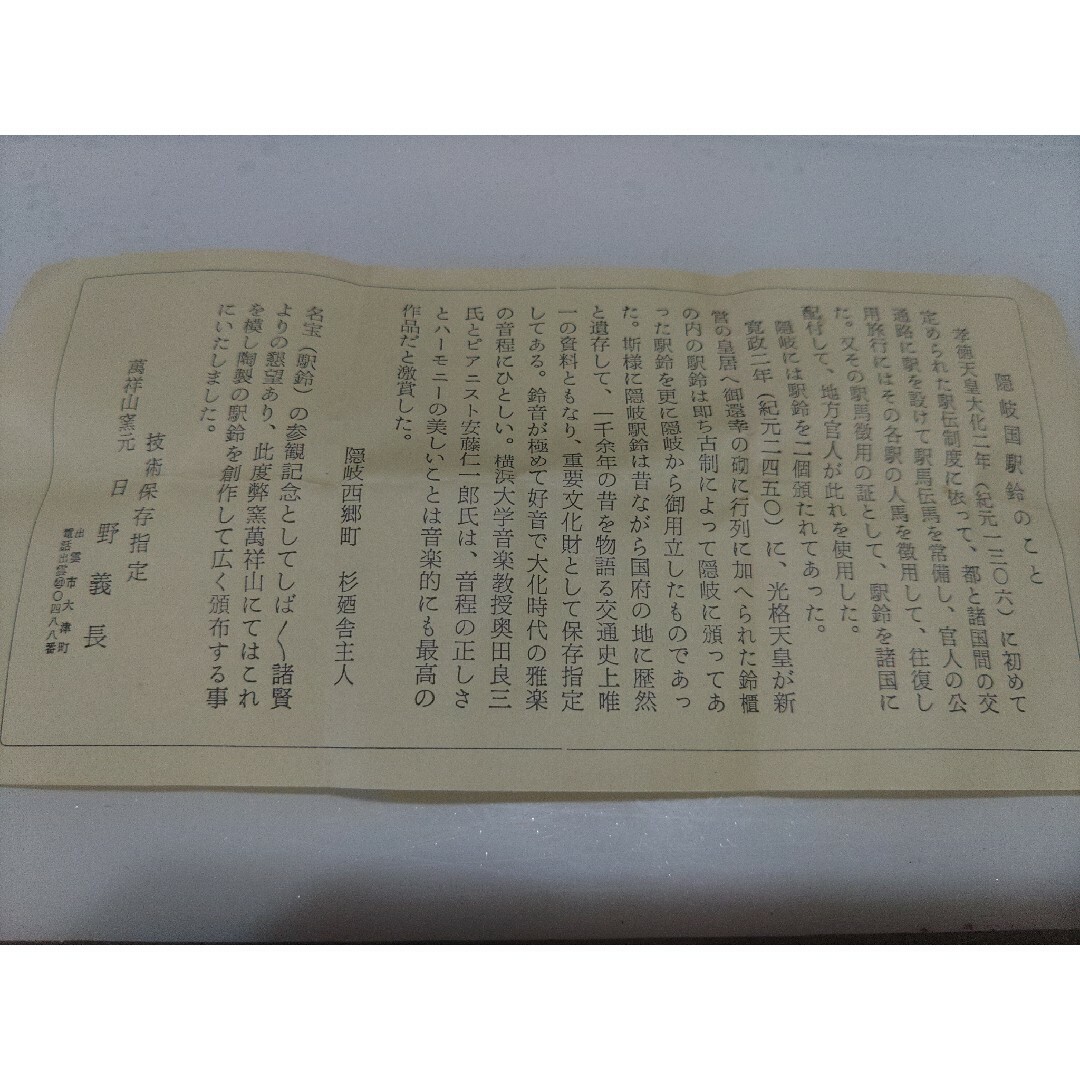 隠岐国駅鈴のこと
孝徳天皇大化二年（紀元一三〇六）に初めて
定められた駅伝制度に依って、都と諸国間の交
通路に駅を設けて駅馬伝馬を常備し、官人の公
用旅行にはその各駅の人馬を徴用して、往復し
た。又その駅馬徴用の証として、駅鈴を諸国に
配付して、地方官人が此れを使用した。
隠岐には駅鈴を二個頒たれてあった。
寛政二年（紀元二四五〇）に、光格天皇が新
営の皇居へ御還幸の砌に行列に加へられた鈴櫃
の内の駅鈴は即ち古制によって隠岐に頒ってあ
った駅鈴を更に隠岐から御用立したものであっ
た。斯様に隠岐駅鈴は昔ながら国府の地に歴然
と遺存して、一千余年の昔を物語る交通史上唯
一の資料ともなり、重要文化財として保存指定
してある。鈴音が極めて好音で大化時代の雅楽
の音程にひとしい。横浜大学音楽教授奥田良三
氏とピアニスト安藤仁一郎氏は、音程の正しさ
とハーモニーの美しいことは音楽的にも最高の
作品だと激賞した。
隠岐西郷町　杉廼舎主人
名宝（駅鈴）の参観記念としてしば〱諸賢
よりの懇望あり、此度弊窯萬祥山にてはこれ
を模し陶製の駅鈴を創作して広く頒布する事
にいたしました。
技術保存指定
萬祥山窯元　日野義長
出雲市大津町
電話出雲②〇四八八番